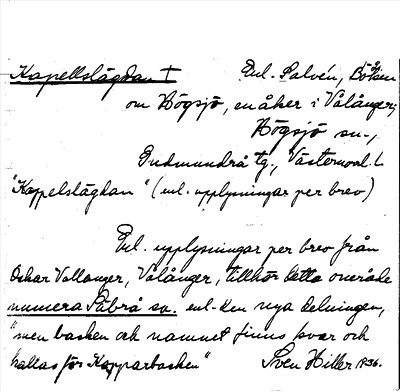 Kapellslägdan † Enl. Salvén, Bol
om Högsjö, en åker i Vålånger,
Högsjö sn.,
Gudmundrå tg., Västernorrl. L
"Kappelslägdan" (enl. upplysningar per brev)
Enl. upplysningar per brev från
Oskar Vallanger, Vålånger, tillhör detta område
numera Säbrå sn. enl. den nya delningen,
"men backen och namnet finns kvar och
kallas för Kapparbacken" Sven Hiller 1936.